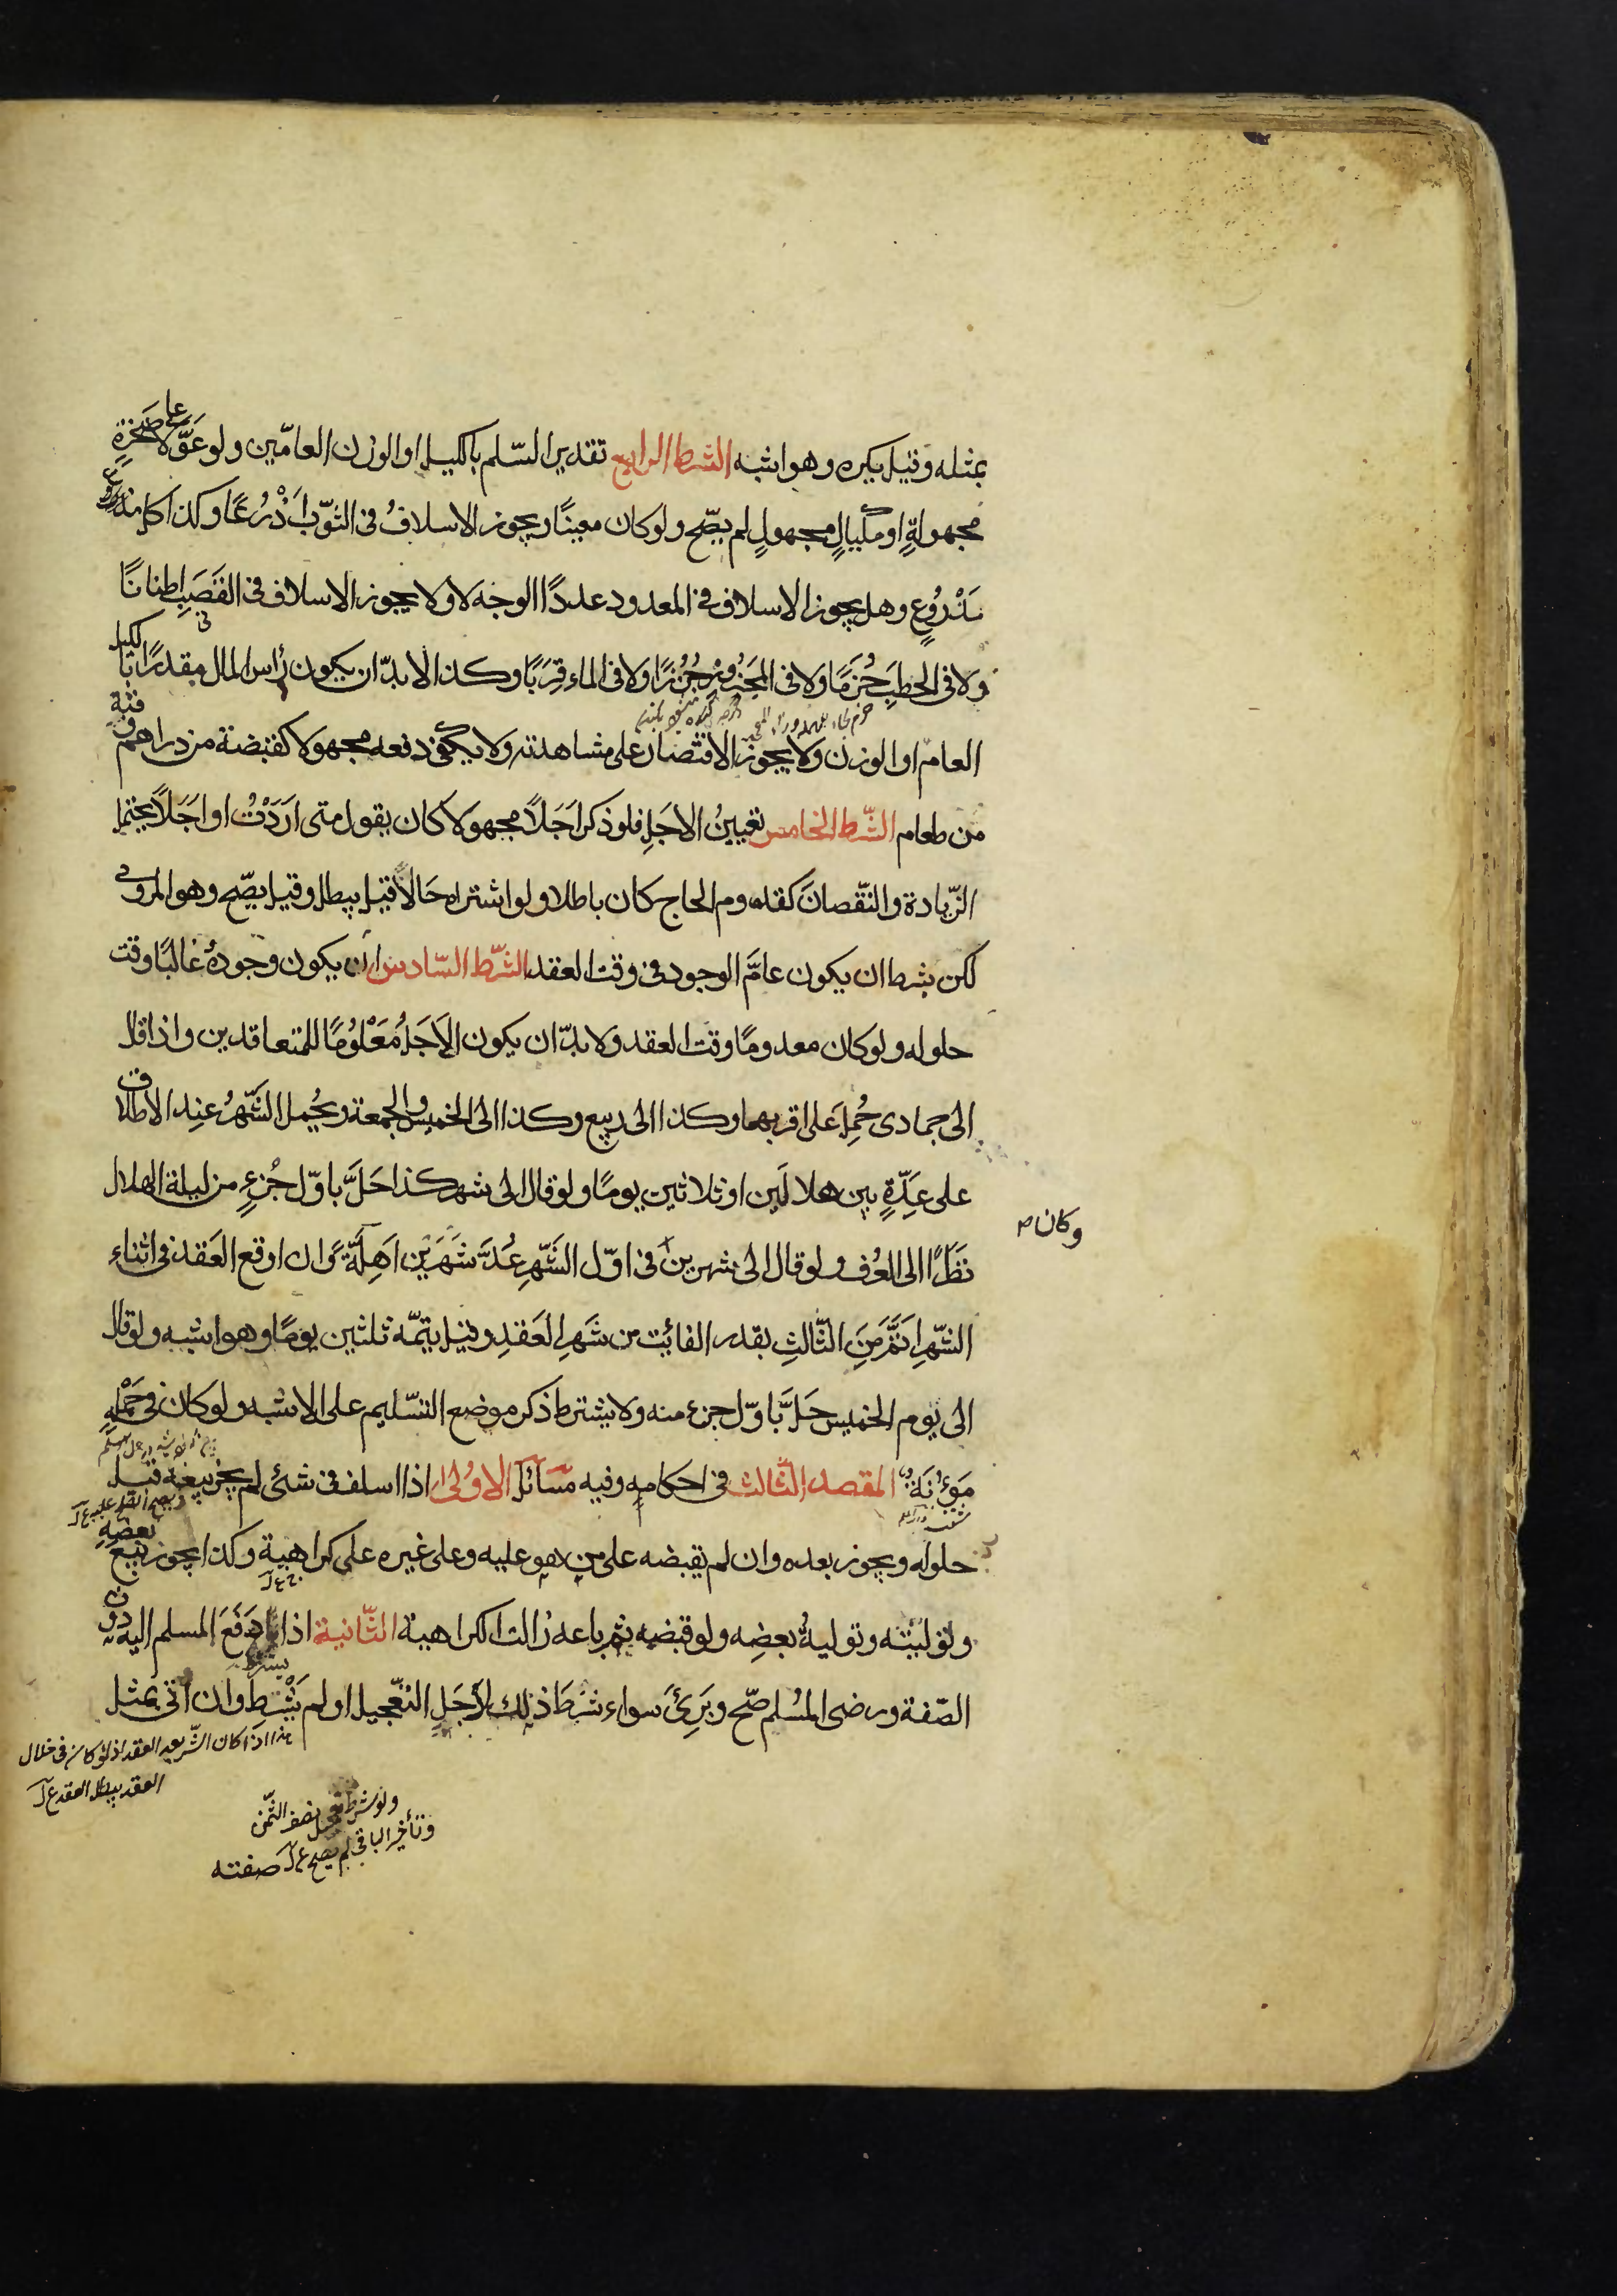 بمثله وقيل يكره وهو اشبه الشرط الرابع تقدير السّلم بالكيل او الوزن العامّين ولو عَوَّلا على صَخرةٍ
مجهولةٍ او مكيالٍ مجهولٍ لم يصّح ولو كان معينًا ويجوز الاسلافُ فى الثوّب اَذْرُعًا وكذا كل مذروع
مَذْرُوْعٍ وهل يجوز الاسلاف فى المعدود عددًا الوجه لا ولا يجوز الاسلاف فى القَصَبِ اطنانًا
ولا فى الحطبِ حُزَمًا ولا فى المَجْزُوزِ جُزُزًا ولا فى الماء قِرَبًا وكذا لا بدّ ان يكون رأس المال مقدرًا بالكيل
العام او الوزن ولا يجوز الاقتصار على مشاهدته ولا يكفى دفعه مجهولا كقبضة من دراهم وقبّة
من طعام الشّرط الخامس تعيينُ الاجَلِ فلو ذكر اجَلاً مجهولا كان يقول متى اَرَدْتُ او اجَلاً يحتمل
الزّيادة والنّقصانَ كقدوم الحاج كان باطلا ولو اشتراه حَالاًّ قيل يبطل وقيل يصّح وهو المروى
لكن بشرط ان يكون عامَّ الوجود فى وقت العقد الشّرط السّادس ان يكون وجودهُ غالبًا وقت
حلوله ولو كان معدومًا وقت العقد ولا بدّ ان يكون الاَجَلُ مَعْلُومًا للمتعاقدين واذا قال
الى جمادى حُمِلَ على اقربهما وكذا الى ربيع وكذا الى الخميس والجمعة ويُحمل الشّهرُ عند الاطلاق
على عِدّةٍ بين هلالَين او ثلاثين يومًا ولو قال الى شهر كذا حَلَّ باوّل جُزءٍ من ليلة الهلال
وكان
نَظَرًا الى العُرف ولو قال الى شهرين فى اوّل الشّهرِ عُدَّ شَهرَيْن اَهِلّةً وان اوقع العَقد فى اثناء
الشّهرِ اَتَمَّ مِنَ الثّالثِ بقدر الفائت من شَهرِ العَقدِ وقيل يتمّه ثلثين يومًا وهو اشبه ولو قال
الى يوم الخميس حَلَّ باوّل جزء منه ولا يشترط ذكر موضع التسّليم على الاشبه ولو كان فى حَمْلِهِ
مَؤُنَةٌ المقصد الثّالث فى احكامه وفيه مسآئل الاوُلى اذا اسلف فى شئى لم يجز بيعه قبل
حلوله ويجوز بعده وان لم يقبضه على من هو عليه وعلى غيره على كراهية وكذا يجوز بَيعُ بعضِه
وتوليتُه وتوليةُ بعضِه ولو قبضه ثم باعه زالت الكراهية الثّانية اذا دَفَعَ المسلم اليه دون
الصّفة ورضى المُسلم صّح وبَرِئَ سواء شرَطَ ذلك لاَجَلِ التعّجيل او لم يَشْتِرط وان اتى بمثل
هذا اذا كان الشّرط بعد العقد اذ لو كان فى خلال
العقد يبطل العقد
ولو شرط تعجيل نصف الثّمن
وتأخير الباقى لم يصح
صفته